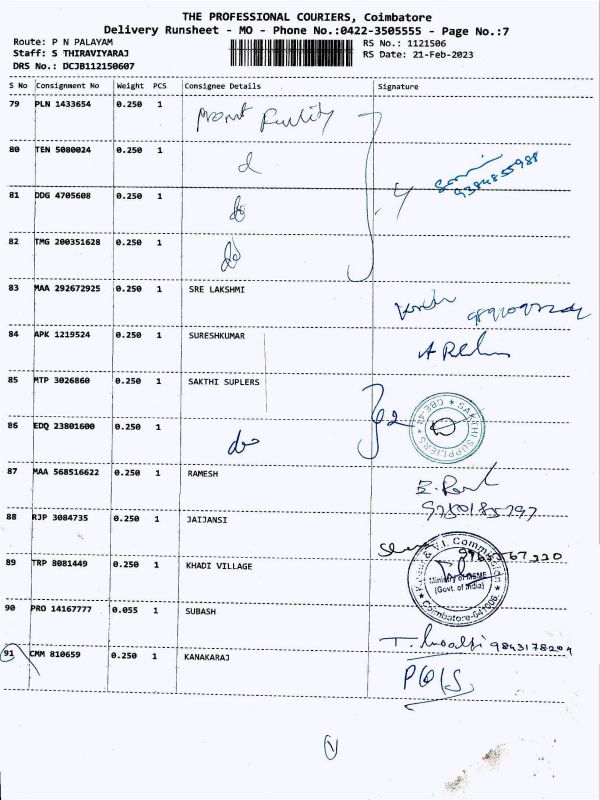 THE PROFESSIONAL COURIERS, Coimbatore
Delivery Runsheet - MO - Phone No.:0422-3505555 - Page No.:7
Route: P N PALAYAM
RS No.: 1121506
Staff: S THIRAVIYARAJ
RS Date: 21-Feb-2023
DRS No.: DCJB112150607
S No Consignment No Weight PCS Consignee Details Signature
79 PLN 1433654 0.250 1
80 TEN 5080024 0.250 1
9384855988
81 DDG 4705608 0.250 1 do
4
82 TMG 200351628 0.250 1 do
83 MAA 292672925 0.250 1 SRE LAKSHMI
84 APK 1219524 0.250 1 SURESHKUMAR
85 MTP 3026860 0.250 1 SAKTHI SUPLERS
2
★ SAKTHI SUPPLIERS ★ CBE-44
86 EDQ 23801600 0.250 1 do
87 MAA 568516622 0.250 1 RAMESH
9750185797
88 RJP 3084735 0.250 1 JAIJANSI
89 TRP 8081449 0.250 1 KHADI VILLAGE
Ministry of MSME
(Govt. of India)
Coimbatore-641006
90 PRO 14167777 0.055 1 SUBASH
9843178204
91 CMM 810659 0.250 1 KANAKARAJ